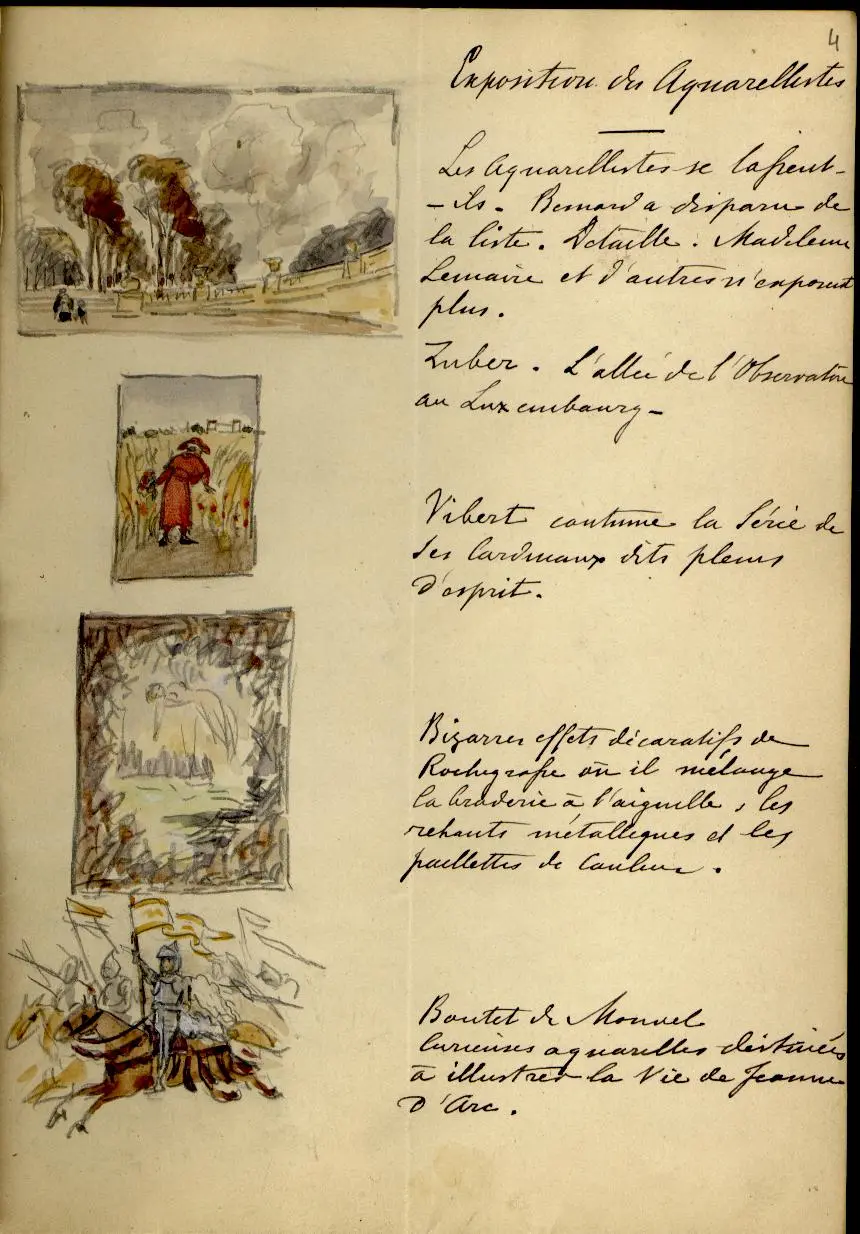 4
Exposition des Aquarellistes
Les Aquarellistes se
- ils. Besnard a disparu de
la liste. Detaille. Madeleine
Lemaire et d'autres n'exposent
plus.
Zuber. L'allée de l'Observatoire
au Luxembourg -
Vibert continue la Série de
ses Cardinaux dits pleins
d'esprit.
Bizarres effets décoratifs de
Rochegrosse où il mélange
la broderie à l'aiguille, les
rehauts métalliques et les
paillettes de Couleur.
Boutet de Monvel
Curieuses aquarelles destinées
à illustrer la Vie de Jeanne
D'Arc.